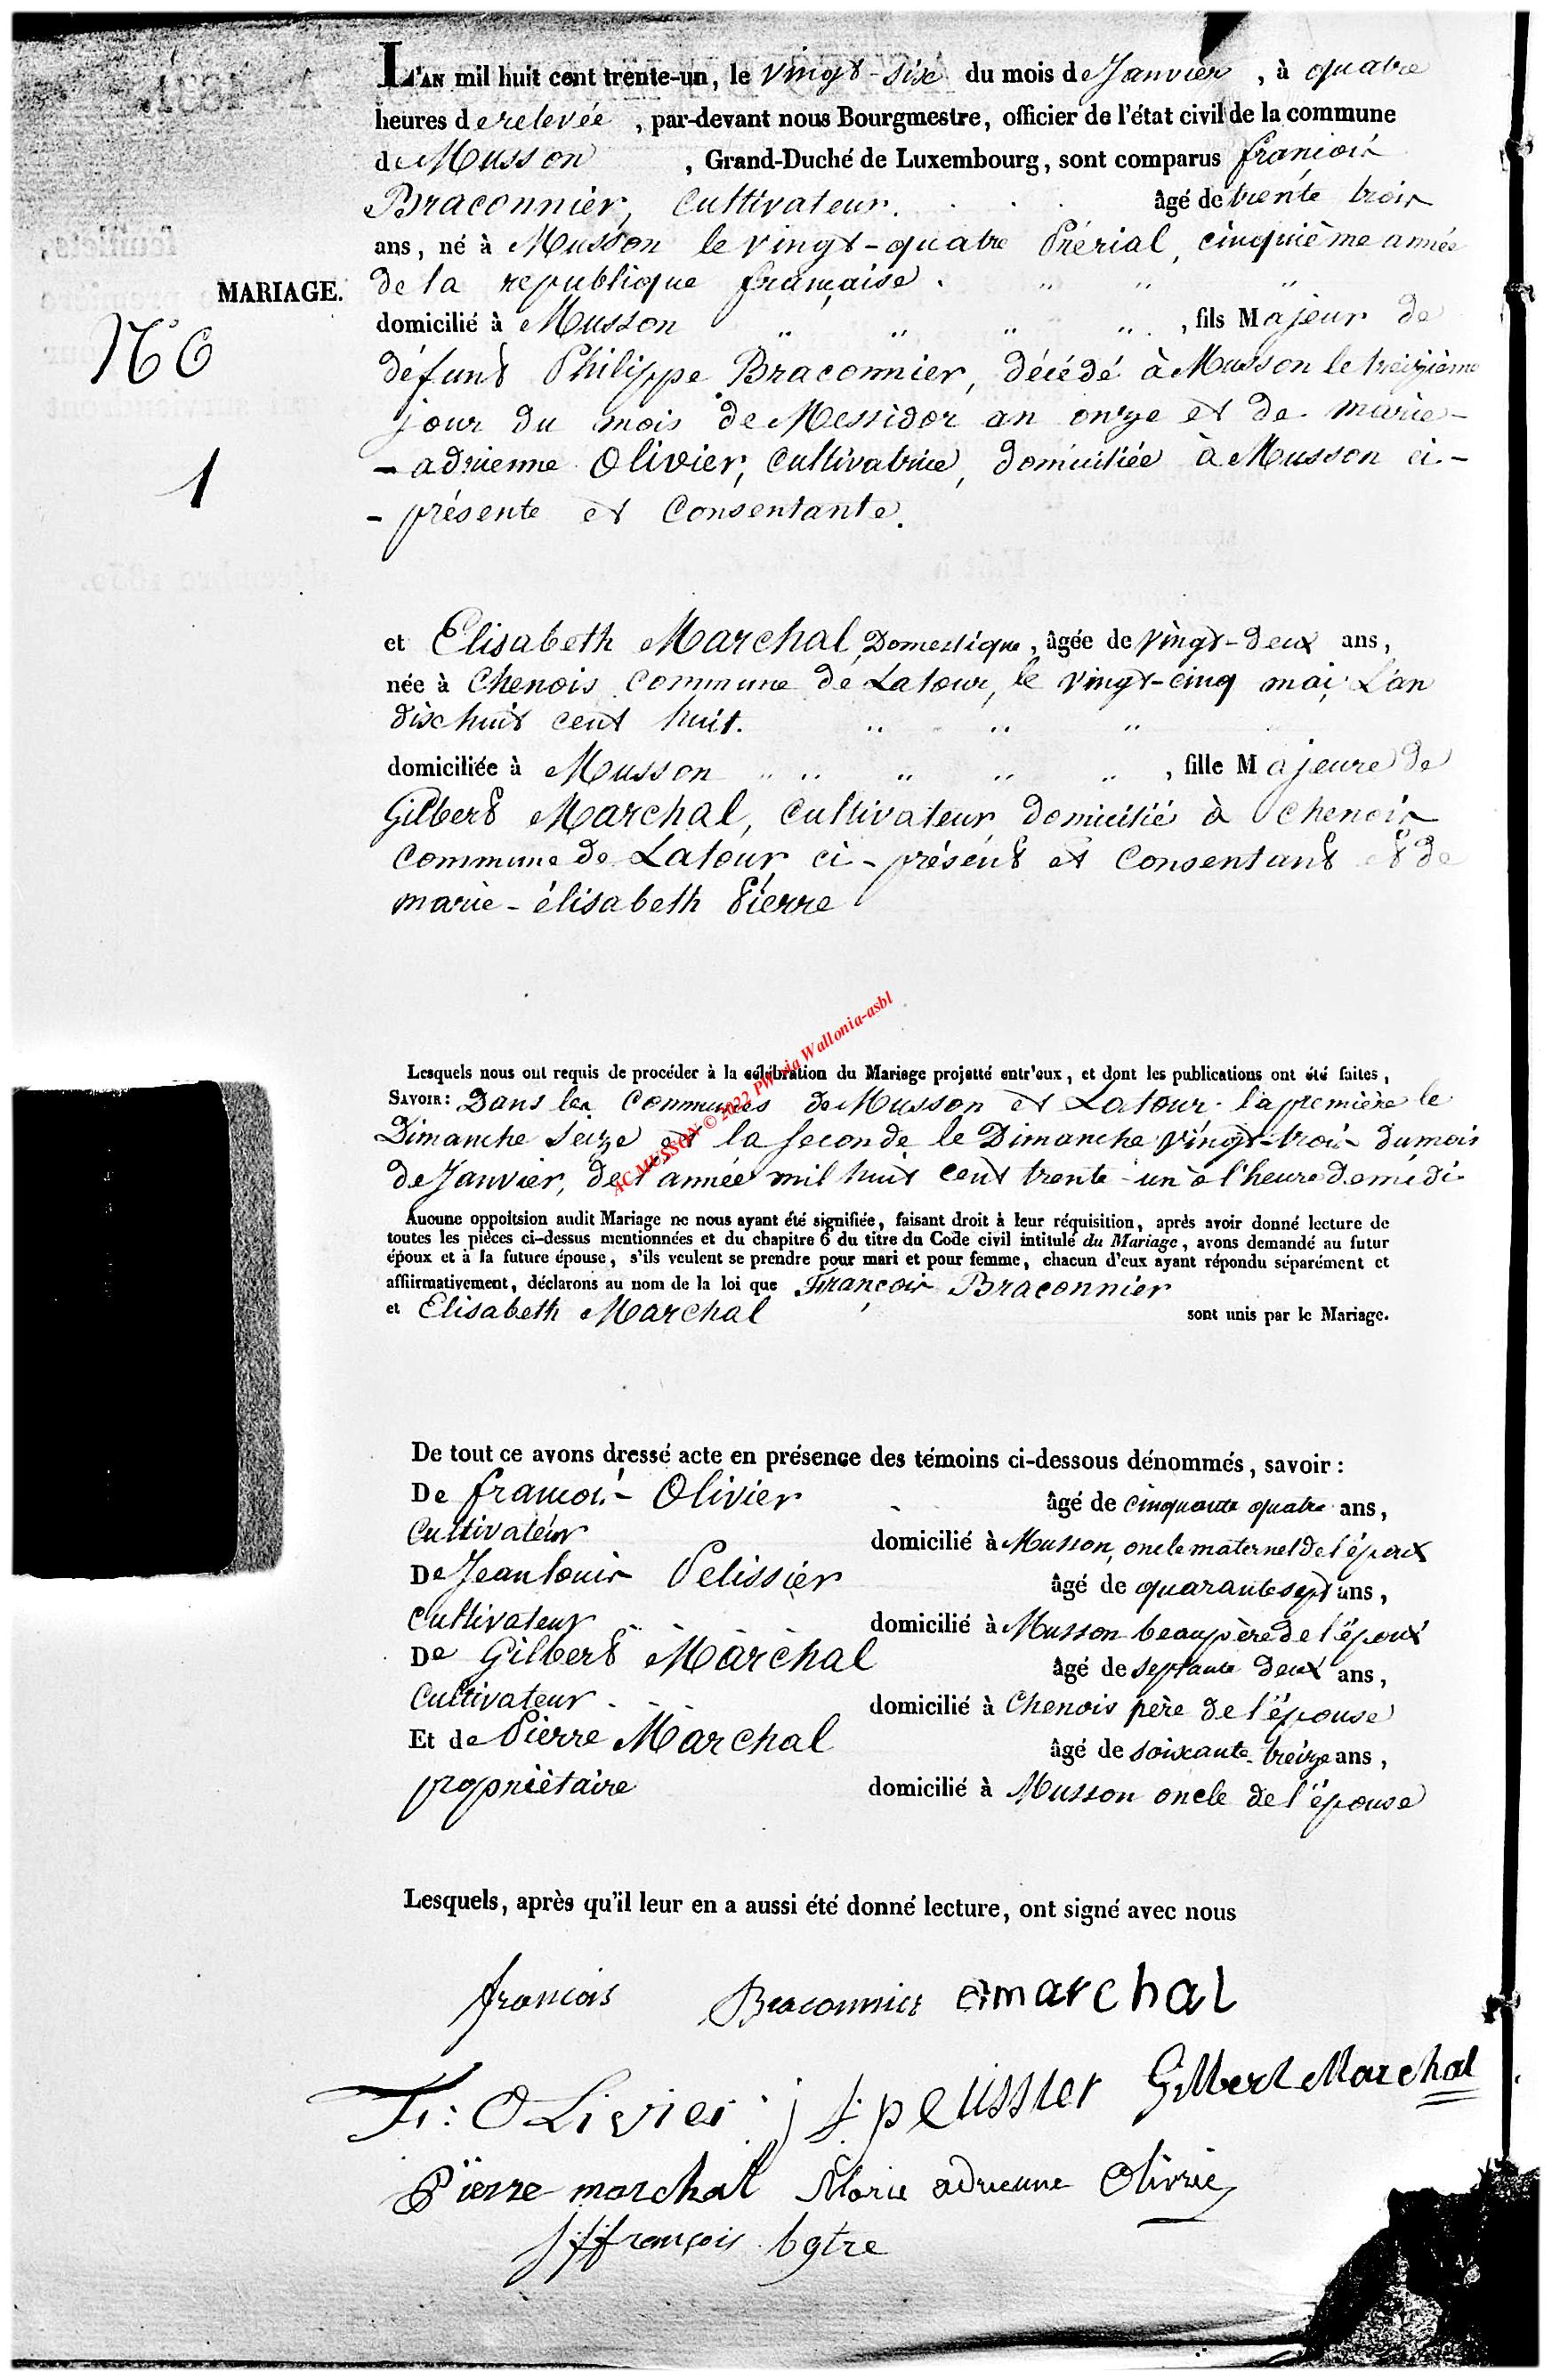 L'AN mil huit cent trente-un, le vingt-six du mois de Janvier, à quatre
heures de relevée, par-devant nous Bourgmestre, officier de l'état civil de la commune
de Musson, Grand-Duché de Luxembourg, sont comparus françois
Braconnier, Cultivateur. âgé de trente trois
ans, né à Musson le vingt-quatre Prérial, cinquième année
de la republique française.
MARIAGE.
domicilié à Musson, fils Majeur de
N° 6
défunt Philippe Braconnier, décédé à Musson le treizième
jour du mois de Messidor an onze et de marie-
1
- adrienne Olivier, Cultivatrice, domiciliée à Musson ci-
- présente et Consentante.
et Elisabeth Marchal, Domestique, âgée de vingt-deux ans,
née à Chenois commune de Latour, le vingt-cinq mai L'an
dix huit cent huit.
domiciliée à Musson, fille Majeure de
Gilbert Marchal, Cultivateur domicilié à Chenois
Commune de Latour ci-présent et Consentant et de
marie-élisabeth Pierre
Lesquels nous ont requis de procéder à la célébration du Mariage projetté entr'eux, et dont les publications ont été faites,
SAVOIR: Dans les Communes de Musson et Latour. la première le
Dimanche Seize et la seconde le Dimanche vingt-trois du mois
de Janvier, de l'année mil huit cent trente-un à l'heure de midi
AC MUSSON © 2022 PW via Wallonia-asbl
Aucune oppoitsion audit Mariage ne nous ayant été signifiée, faisant droit à leur réquisition, après avoir donné lecture de
toutes les pièces ci-dessus mentionnées et du chapitre 6 du titre du Code civil intitulé du Mariage, avons demandé au futur
époux et à la future épouse, s'ils veulent se prendre pour mari et pour femme, chacun d'eux ayant répondu séparément et
affiirmativement, déclarons au nom de la loi que François Braconnier
et Elisabeth Marchal sont unis par le Mariage.
De tout ce avons dressé acte en présence des témoins ci-dessous dénommés, savoir :
De françois Olivier âgé de cinquante quatre ans,
Cultivateur domicilié à Musson, oncle maternel de l'époux
De Jean louis Pelissier âgé de quarante sept ans,
Cultivateur domicilié à Musson beaupère de l'époux
De Gilbert Marchal âgé de septante deux ans,
Cultivateur domicilié à Chenois père de l'épouse
Et de Pierre Marchal âgé de soixante-treize ans,
propriétaire domicilié à Musson oncle de l'épouse
Lesquels, après qu'il leur en a aussi été donné lecture, ont signé avec nous
francois Braconnier emarchal
Fr: OLivier j L: pelissier Gilbert Marchal
Pierre marchal Marie adrienne Olivie
françois bgtre